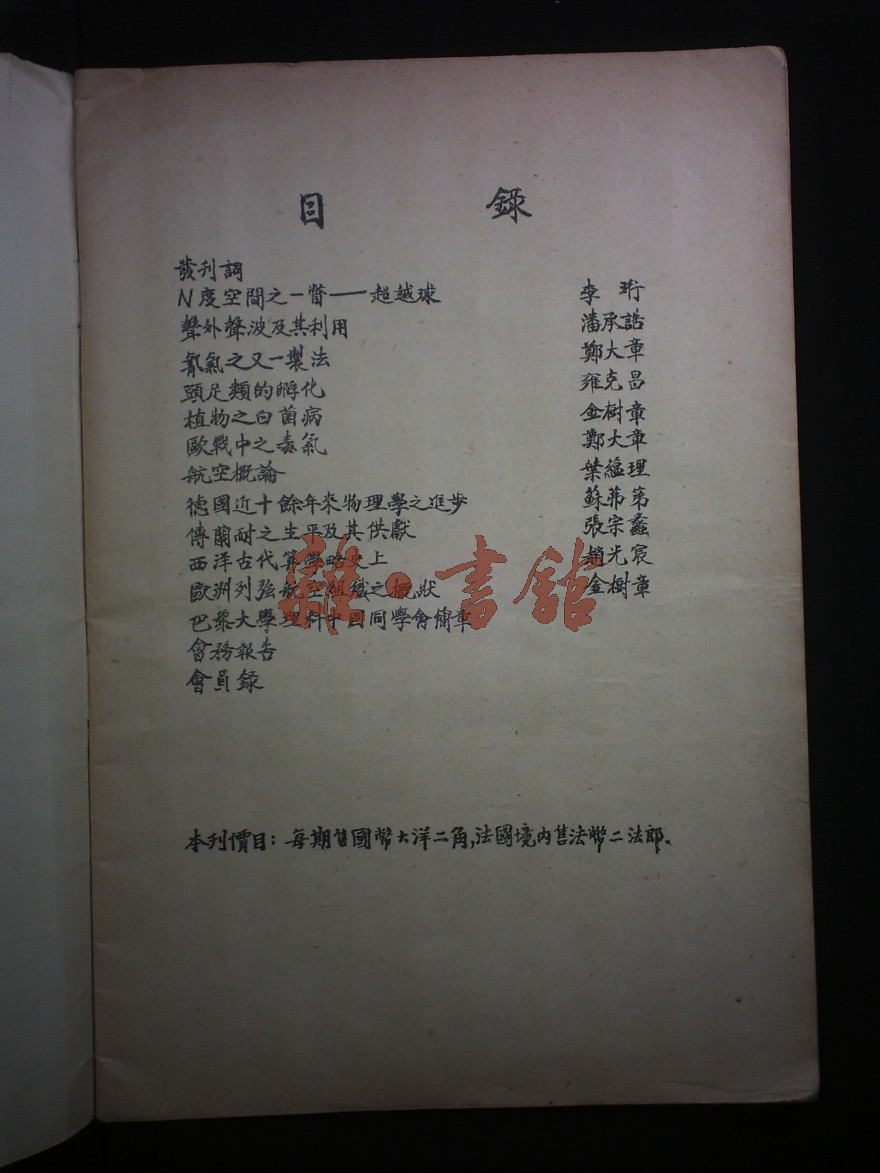 目 錄
發刊詞
N度空間之一瞥——超越球 李珩
聲外聲波及其利用 潘承誥
氰氣之又一製法 鄭大章
頭足類的孵化 雍克昌
植物之白菌病 金樹章
歐戰中之毒氣 鄭大章
航空概論 葉蘊理
德國近十餘年來物理學之進步 蘇弗第
傅蘭耐之生平及其供獻 張宗蠡
西洋古代算學略史上 趙光宸
歐洲列強航空組織之概狀 金樹章
巴黎大學理科中國同學會簡章
會務報告
會員錄
雜·書館
本刊價目：每期售國幣大洋二角,法國境内售法幣二法郎.